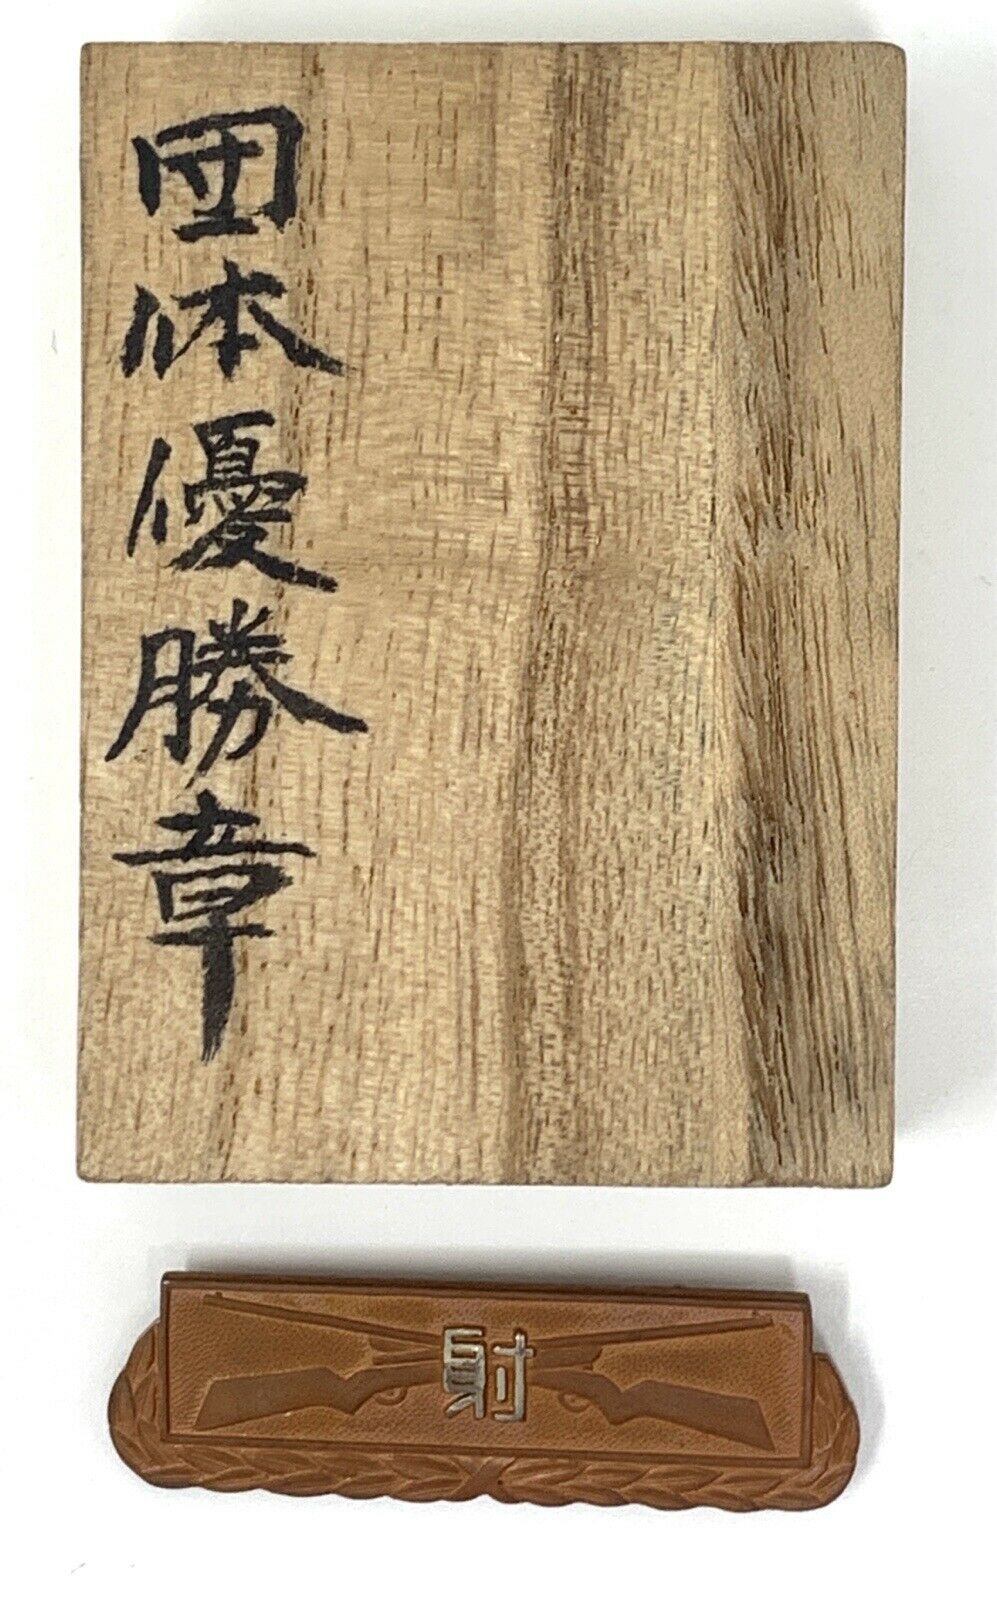 団体優勝章
射